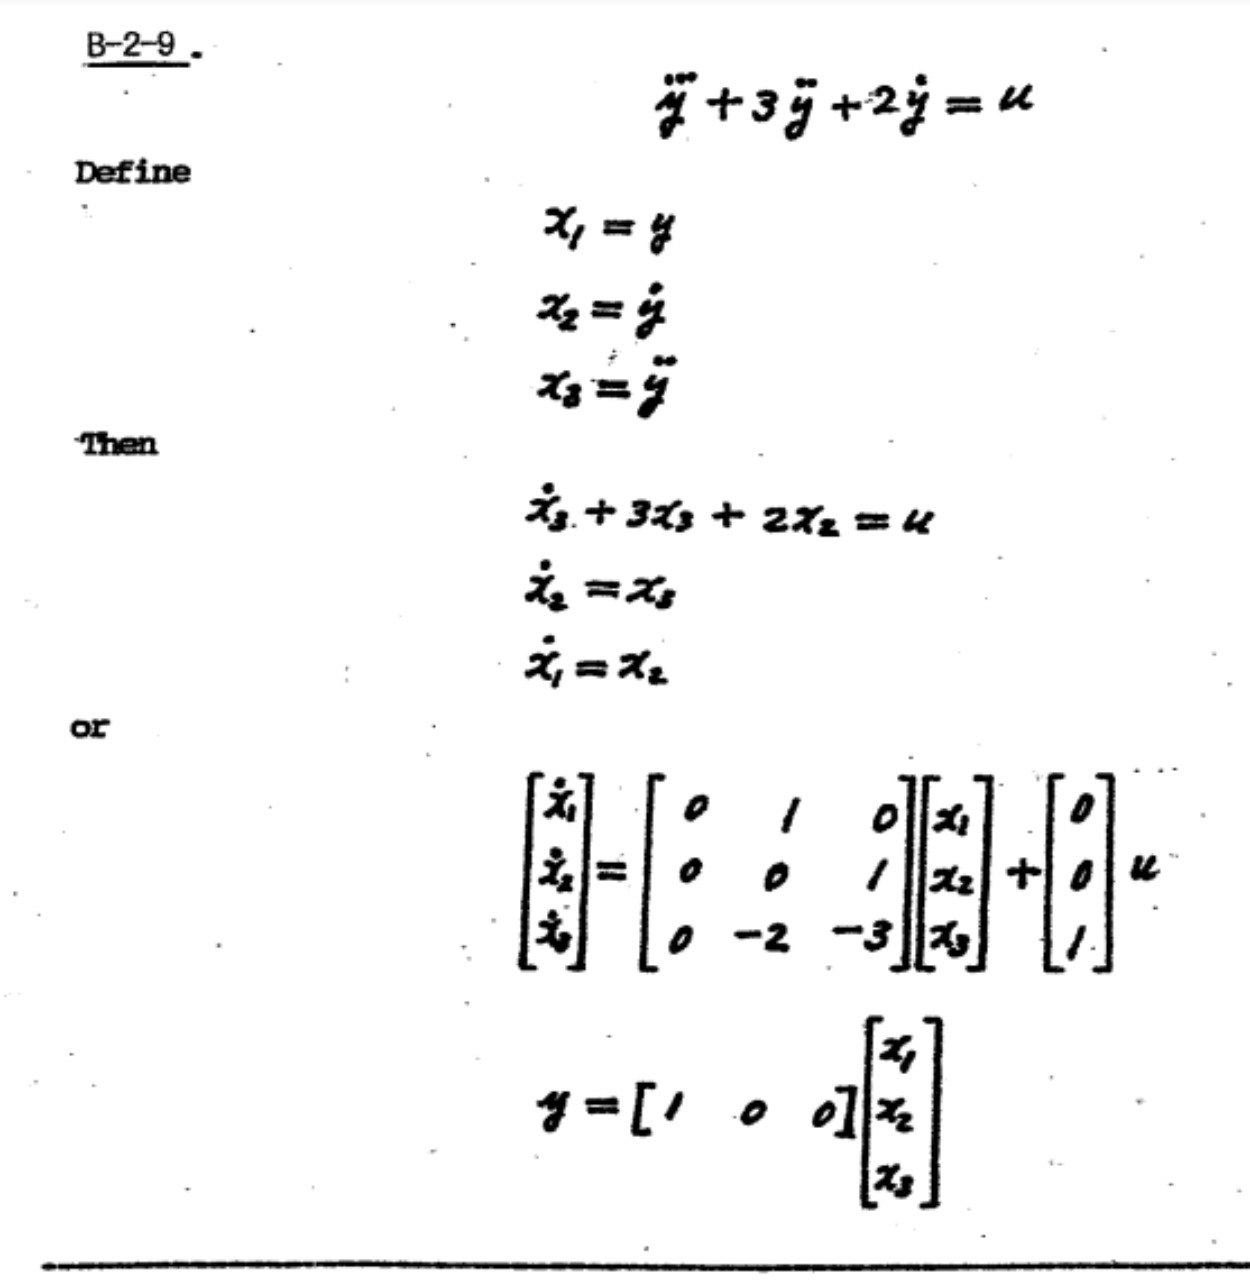 B-2-9.
y⃛ + 3ÿ + 2ẏ = u
Define
x₁ = y
x₂ = ẏ
x₃ = ÿ
Then
ẋ₃ + 3x₃ + 2x₂ = u
ẋ₂ = x₃
ẋ₁ = x₂
or
[ẋ₁; ẋ₂; ẋ₃] = [0 1 0; 0 0 1; 0 -2 -3] [x₁; x₂; x₃] + [0; 0; 1] u
y = [1 0 0] [x₁; x₂; x₃]